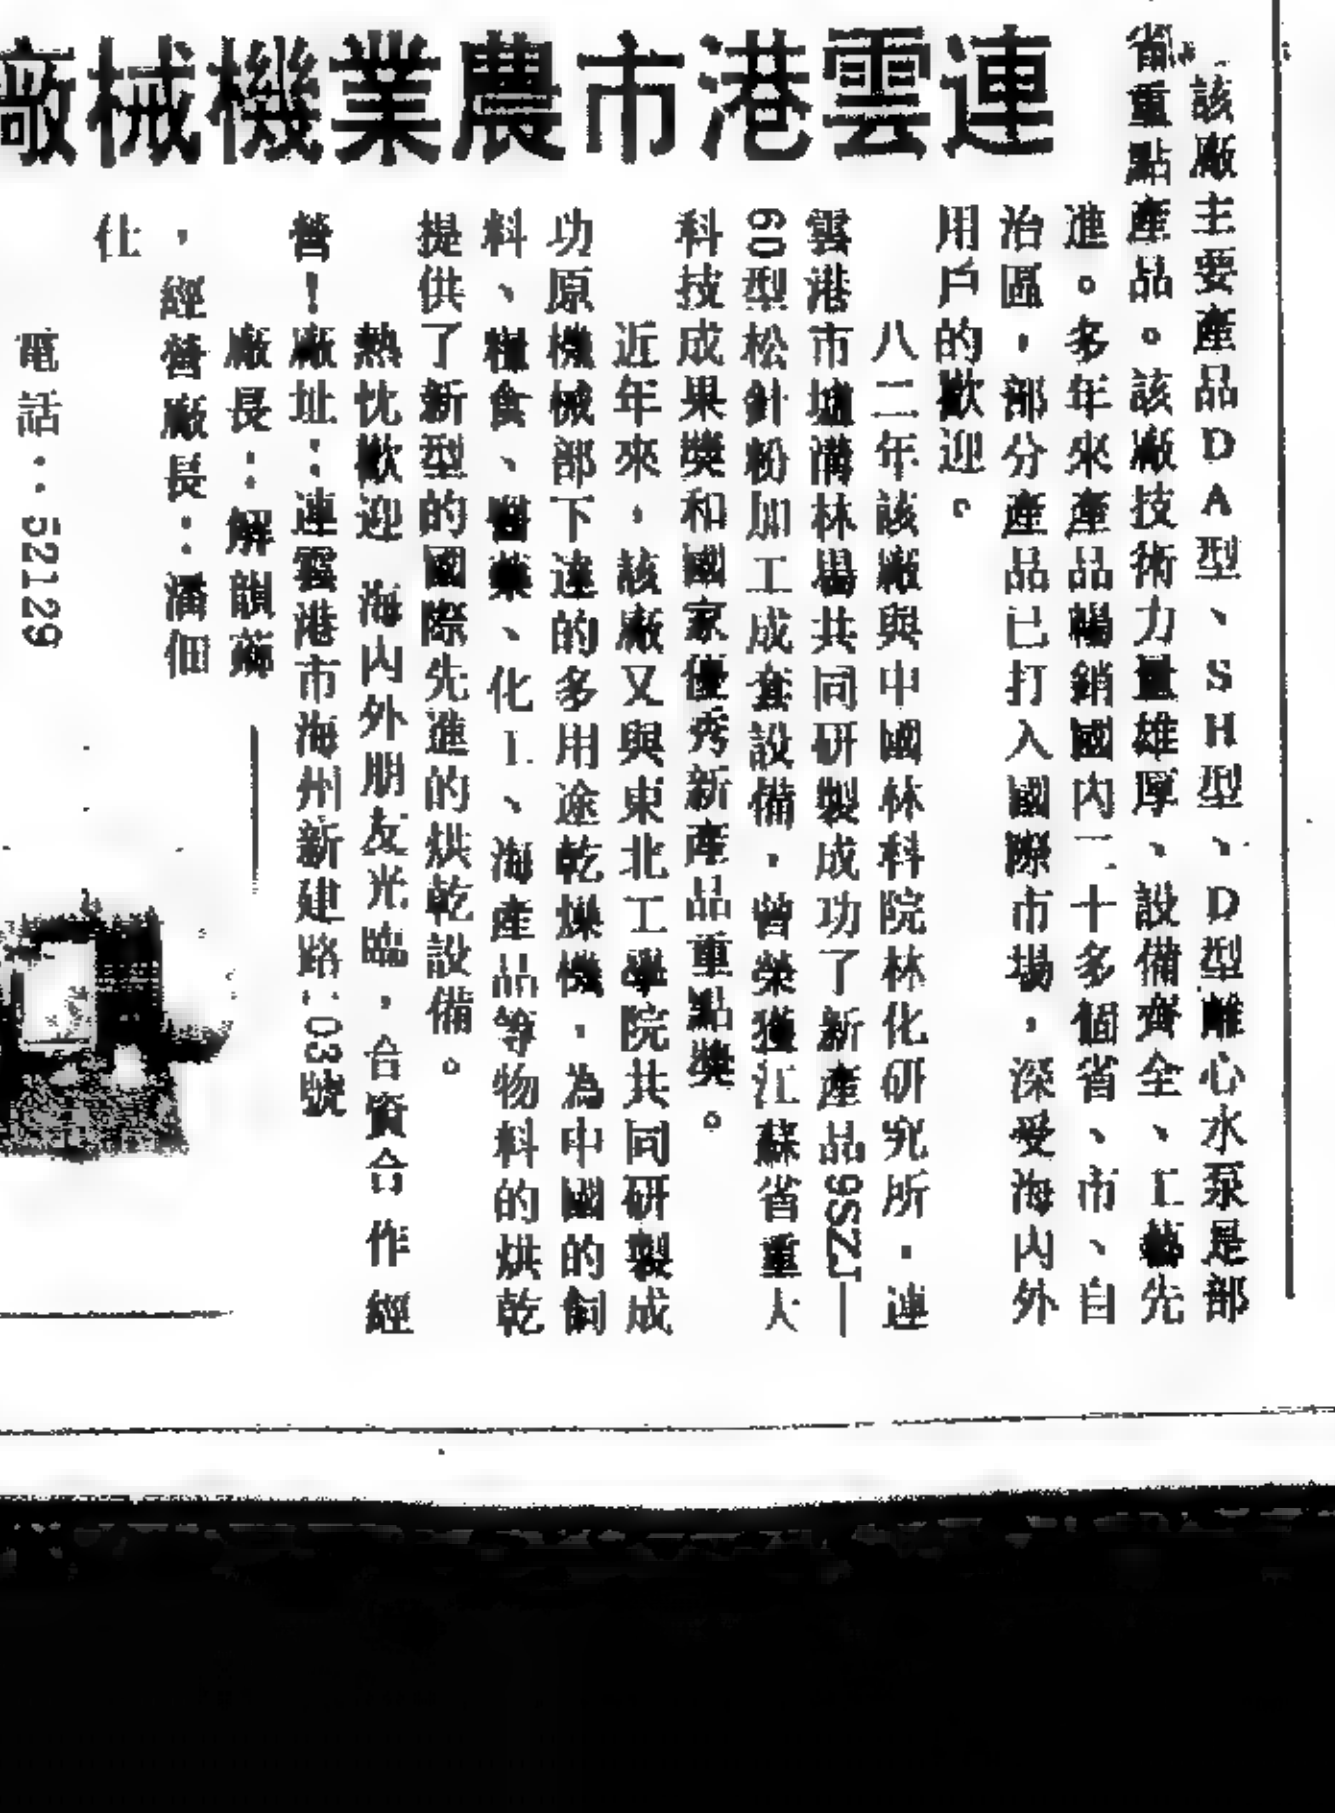 連雲港市農業機械廠
該廠主要產品DA型、SH型、D型離心水泵是部
省重點產品。該廠技術力量雄厚、設備齊全、工藝先
進。多年來產品暢銷國內二十多個省、市、自
治區,部分產品已打入國際市場,深受海內外
用戶的歡迎。
八二年該廠與中國林科院林化研究所,連
雲港市墟溝林場共同研製成功了新產品9SZJ—
60型松針粉加工成套設備,曾榮獲江蘇省重大
科技成果獎和國家優秀新產品重點獎。
近年來,該廠又與東北工學院共同研製成
功原機械部下達的多用途乾燥機,為中國的飼
料、糧食、醫藥、化工、海產品等物料的烘乾
提供了新型的國際先進的烘乾設備。
熱忱歡迎 海內外朋友光臨,合資合作經
營!廠址:連雲港市海州新建路103號
廠長:解韻
,經營廠長:潘佃
仕
電話:52129